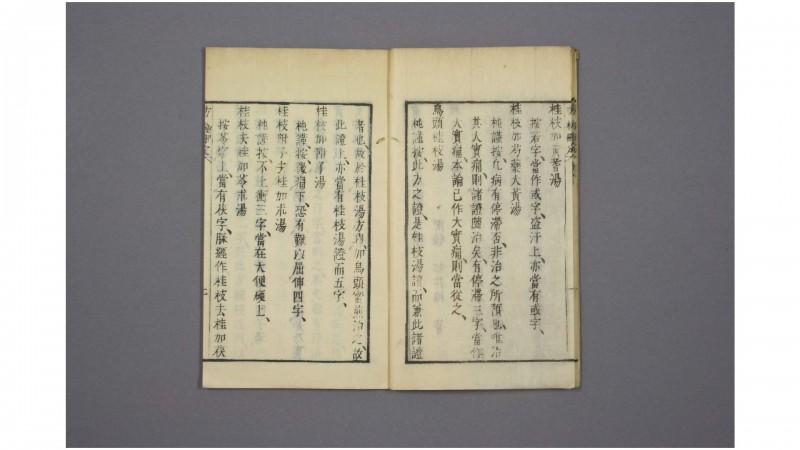 桂枝加黃耆湯
按若字當作或字、盜汗上、亦當有或字、
桂枝加芍藥大黃湯
純謹按、凡病有停滯否、非治之所預也、唯治
其人實痛、則諸證隨治矣、有停滯三字、當作
大實痛、本論已作大實痛、則當從之、
烏頭桂枝湯
純謹按、此方之證、是桂枝湯證、而兼此諸證
者也、故於桂枝湯方內、加烏頭蜜煎治之、故
此證上、亦當有桂枝湯證而五字、
桂枝加附子湯
純謹按、攣痛下、恐有難以屈伸四字、
桂枝附子去桂加朮湯
純謹按、不上衝三字、當在大便硬上、
桂枝去桂加苓朮湯
按苓字上、當有茯字、脉經作桂枝去桂加茯